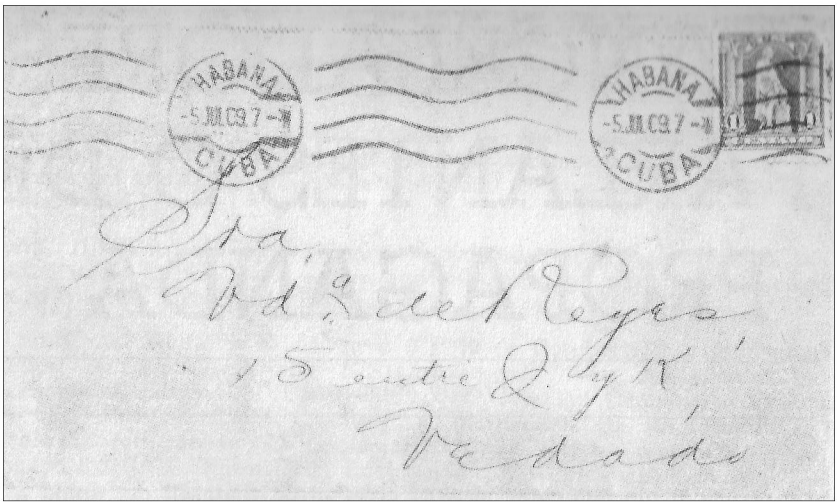 HABANA
-5.JUL.09.7-M
CUBA
HABANA
-5.JUL.09.7-M
CUBA
Sra.
Vd.ª de Reyes,
15 entre J. y K,
Vedado